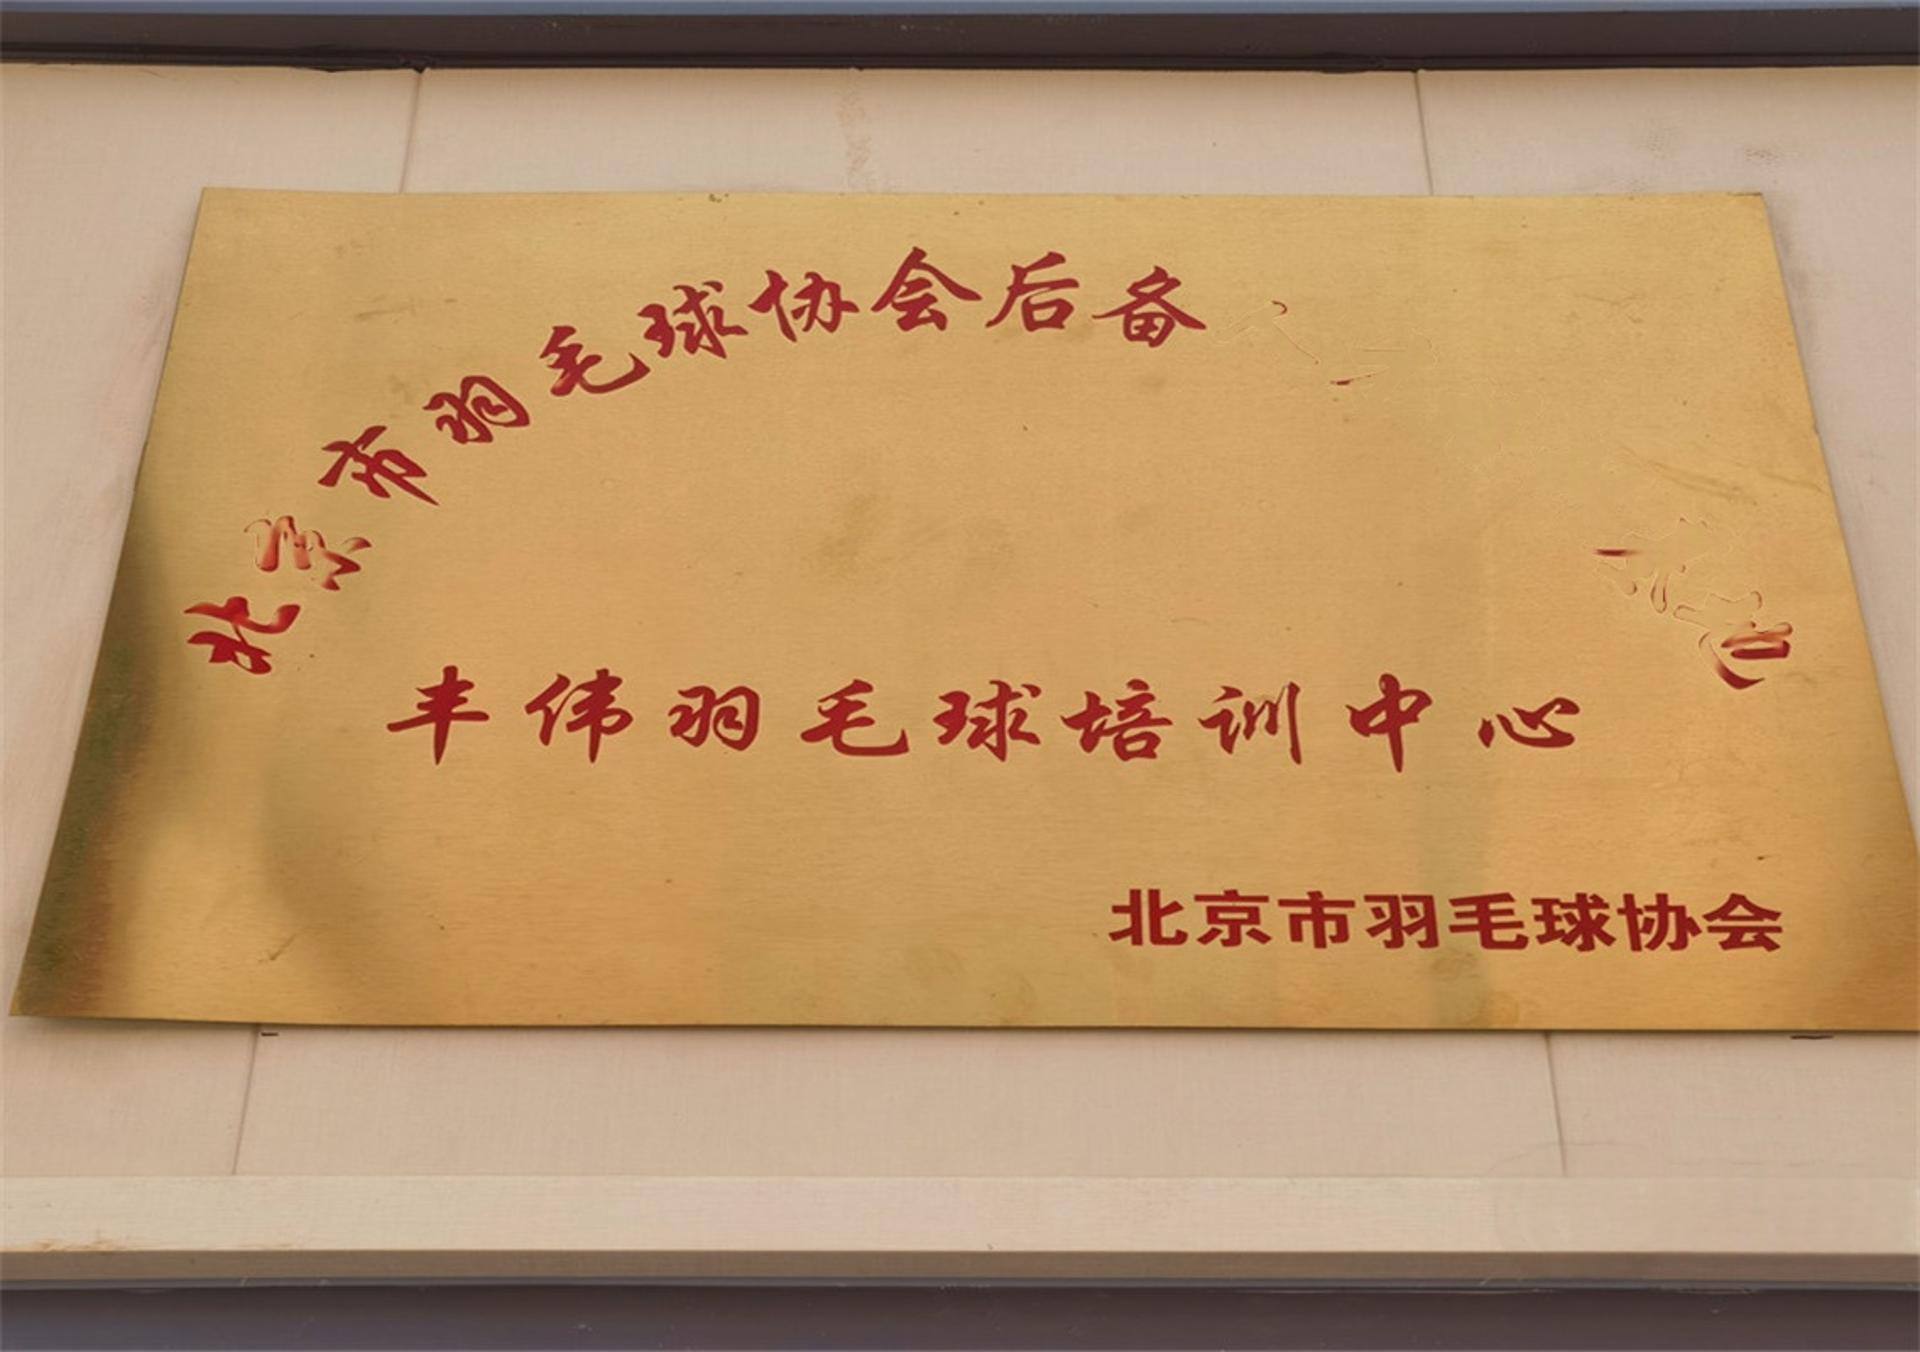 北京市羽毛球协会后备
丰伟羽毛球培训中心
北京市羽毛球协会